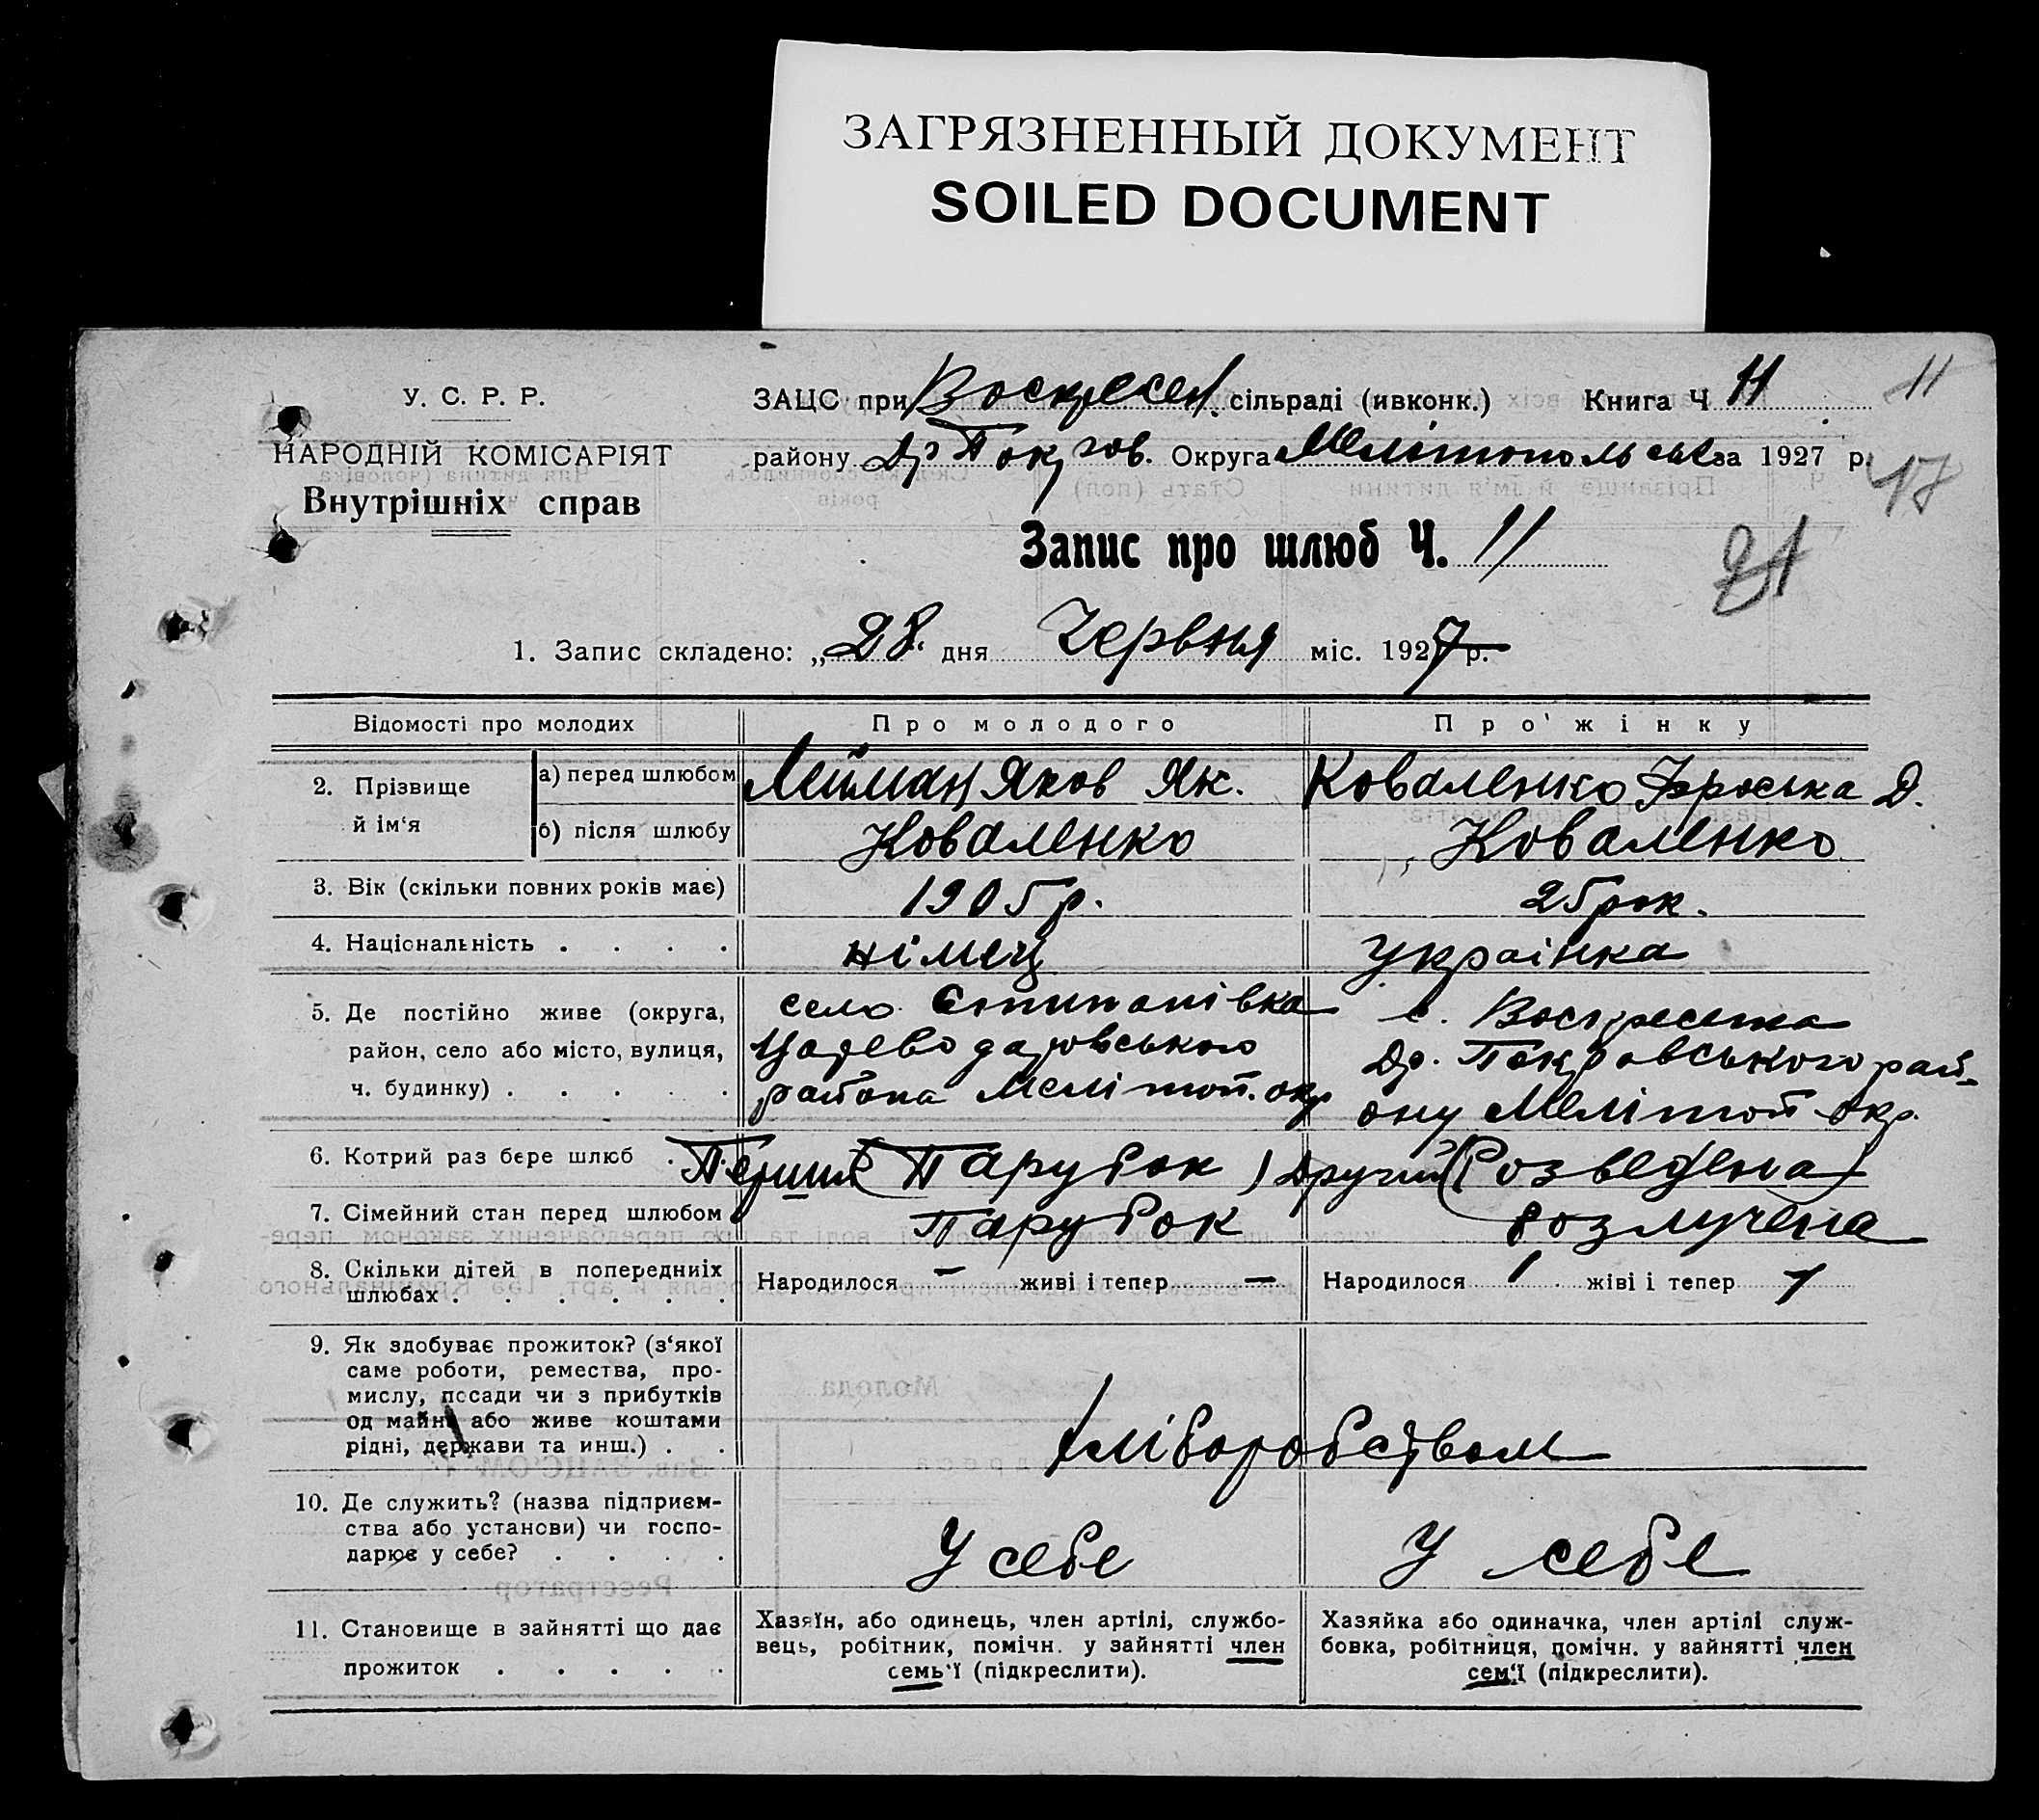 ЗАГРЯЗНЕННЫЙ ДОКУМЕНТ
SOILED DOCUMENT
У. С. Р. Р.
НАРОДНІЙ КОМІСАРІЯТ
Внутрішніх справ
ЗАЦС при Воскресен. сільраді (ивконк.) Книга Ч 11 11
району Др Покров. Округа Мелітопольська за 1927 р.
17
Запис про шлюб Ч. 11
21
1. Запис складено: „28" дня Червня міс. 1927 р.
Відомості про молодих Про молодого Про жінку
2. Прізвище й ім'я
а) перед шлюбом Нейман Яков Як. Коваленко Фроська Д.
б) після шлюбу Коваленко Коваленко
3. Вік (скільки повних років має) 1905 р. 25 рок.
4. Національність . . . . німец українка
5. Де постійно живе (округа, район, село або місто, вулиця, ч. будинку) . . . . .
село
района Мелітоп. окр
с. Воскресенка
Др. Покровського рай-
ону Мелітоп окр.
6. Котрий раз бере шлюб . . Перший (Парубок) Другий (Розведена)
7. Сімейний стан перед шлюбом Парубок розлучена
8. Скільки дітей в попередниіх шлюбах . . . . . .
Народилося – живі і тепер – Народилося 1 жіві і тепер 1
9. Як здобуває прожиток? (з'якої
саме роботи, ремества, про-
мислу, посади чи з прибутків
од майна або живе коштами
рідні, держави та инш.) . .
хліборобством
10. Де служить? (назва підприєм-
ства або установи) чи госпо-
дарює у себе? . . . .
У себе У себе
11. Становище в зайнятті що дає
прожиток . . . . .
Хазяїн, або одинець, член артілі, службо-
вець, робітник, помічн. у зайнятті член
семь'ї (підкреслити).
Хазяйка або одиначка, член артілі служ-
бовка, робітниця, помічн. у зайнятті член
сем'ї (підкреслити).